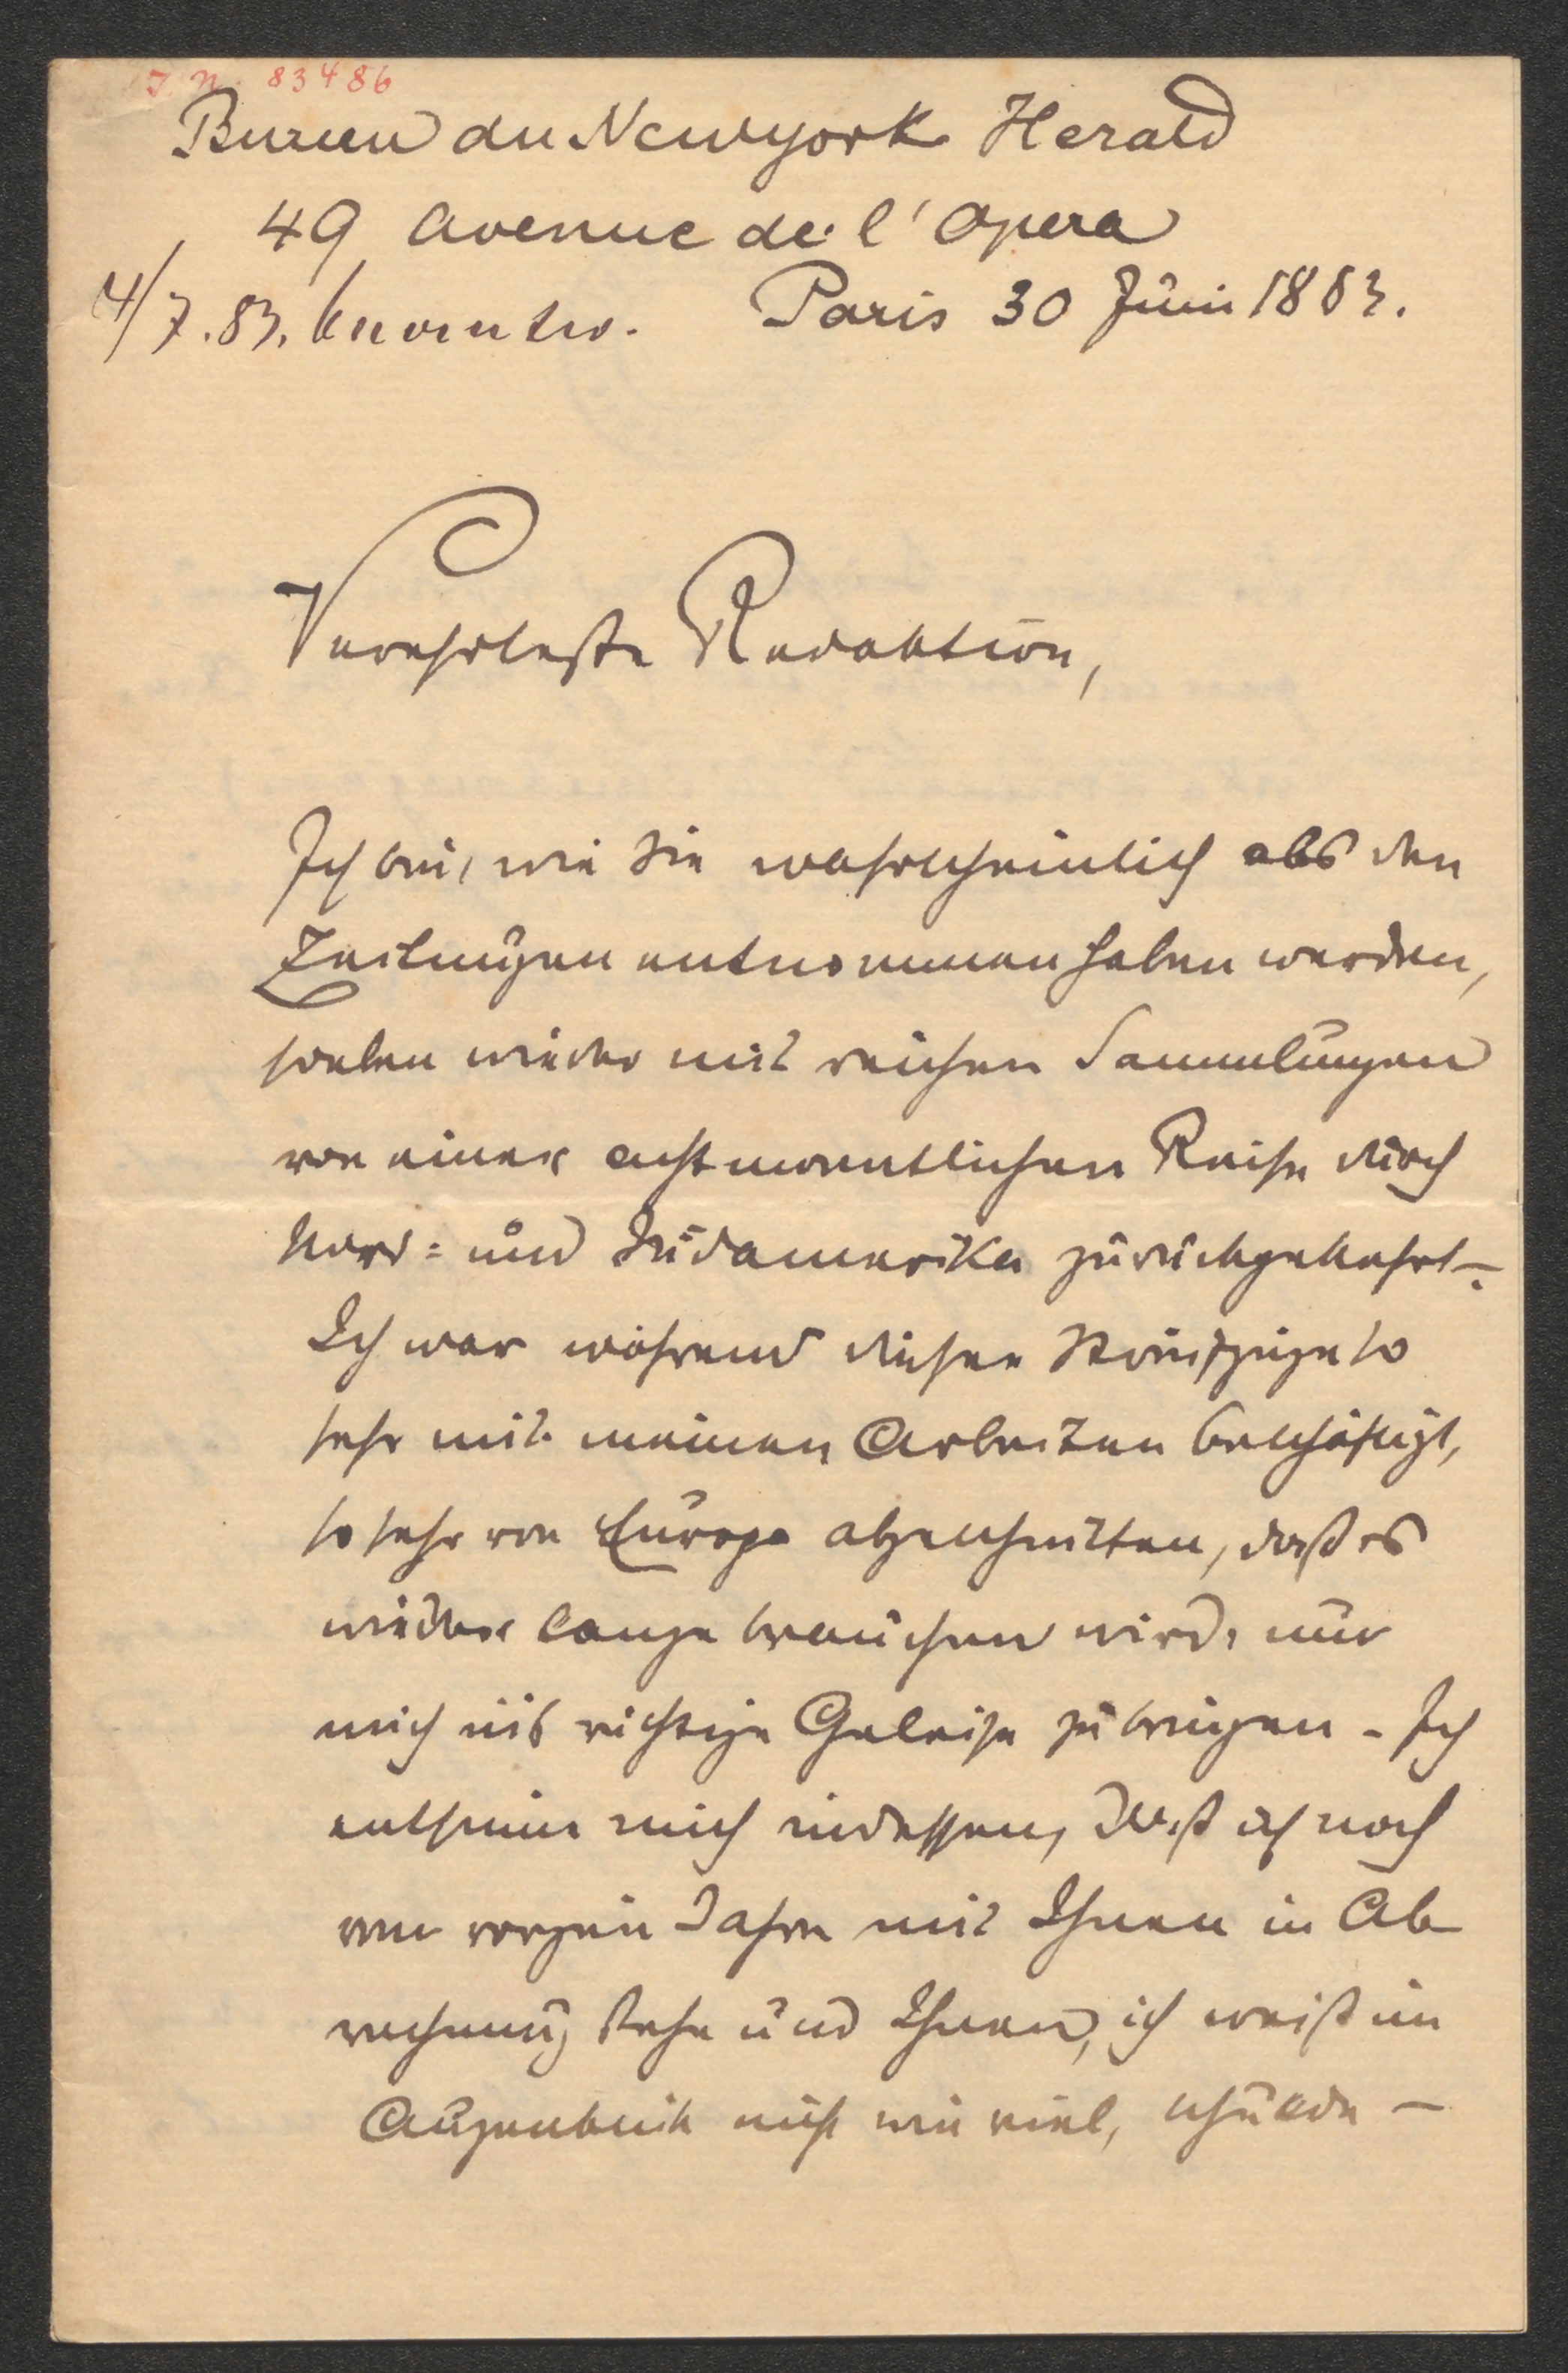 I. N. 83486
Bureau du Newyork Herald
49 Avenue de l'Opera
4/7.83. beantw. Paris 30 Juni 1883.
Verehrteste Redaktion,
Ich bin, wie Sie wahrscheinlich aus den
Zeitungen entnommen haben werden,
soeben wieder mit reichen Sammlungen
von einer achtmonatlichen Reise durch
Nord= und Südamerika zurückgekehrt –.
Ich war während dieser Streifzüge so
sehr mit meinen Arbeiten beschäftigt,
so sehr von Europa abgeschnitten, daß es
wieder lange brauchen wird, um
mich ins richtige Geleise zu bringen – Ich
entsinne mich indessen, daß ich noch
vom vorigen Jahre mit Ihnen in Ab
rechnung stehe und Ihnen, ich weiß im
Augenblick nicht wie viel, schulde –